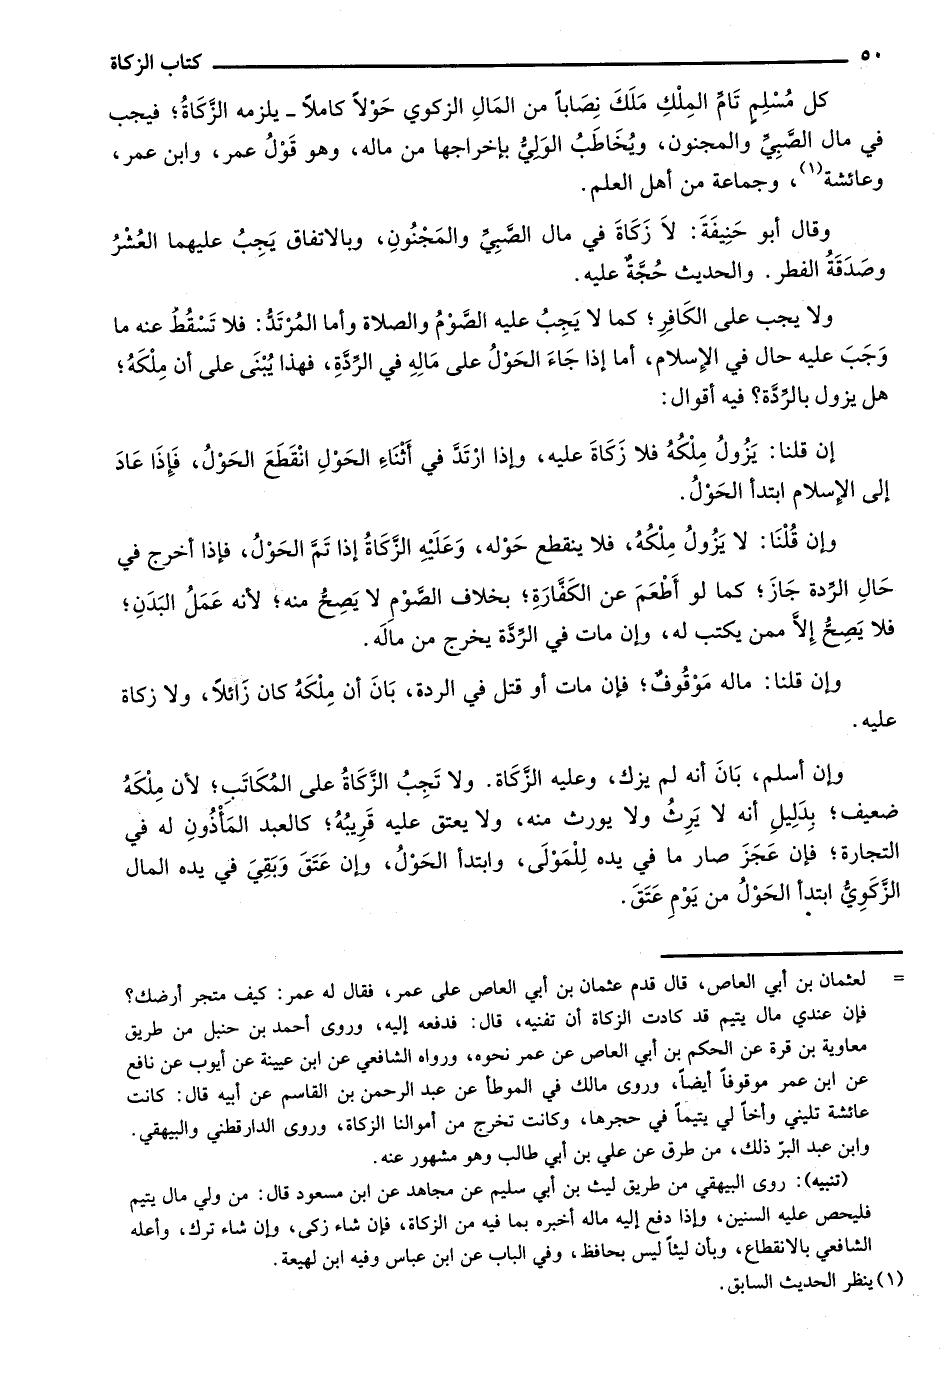 ٥٠ كتاب الزكاة
كل مُسْلِمٍ تَامِّ المِلْكِ مَلَكَ نِصَاباً من المَالِ الزكوي حَوْلاً كاملاً ـ يلزمه الزَّكَاةُ؛ فيجب
في مال الصَّبِيِّ والمجنون، ويُخَاطَبُ الوَلِيُّ بإخراجها من ماله، وهو قَوْلُ عمر، وابن عمر،
وعائشة(١)، وجماعة من أهل العلم.
وقال أبو حَنِيفَةَ: لاَ زَكَاةَ في مال الصَّبِيِّ والمَجْنُونِ، وبالاتفاق يَجِبُ عليهما العُشْرُ
وصَدَقَةُ الفطر. والحديث حُجَّةٌ عليه.
ولا يجب على الكَافِرِ؛ كما لا يَجِبُ عليه الصَّوْمُ والصلاة وأما المُرْتَدُّ: فلا تَسْقُطُ عنه ما
وَجَبَ عليه حال في الإسلام، أما إذا جَاءَ الحَوْلُ على مَالِهِ في الرِّدَّةِ، فهذا يُبْنَى على أن مِلْكَهُ؛
هل يزول بالرِّدَّة؟ فيه أقوال:
إن قلنا: يَزُولُ مِلْكُهُ فلا زَكَاةَ عليه، وإذا ارْتَدَّ في أَثْنَاءِ الحَوْلِ انْقَطَعَ الحَوْلُ، فَإِذَا عَادَ
إلى الإسلام ابتدأ الحَوْلُ.
وإن قُلْنَا: لا يَزُولُ مِلْكُهُ، فلا ينقطع حَوْله، وَعَلَيْهِ الزَّكَاةُ إذا تَمَّ الحَوْلُ، فإذا أخرج في
حَالِ الرِّدة جَازَ؛ كما لو أَطْعَمَ عن الكَفَّارَةِ؛ بخلاف الصَّوْمِ لا يَصِحُّ منه؛ لأنه عَمَلُ البَدَنِ؛
فلا يَصِحُّ إلاَّ ممن يكتب له، وإن مات في الرِّدَّة يخرج من مالَه.
وإن قلنا: ماله مَوْقُوفٌ؛ فإن مات أو قتل في الردة، بَانَ أن مِلْكَهُ كان زَائلاً، ولا زكاة
عليه.
وإن أسلم، بَانَ أنه لم يزك، وعليه الزَّكَاة. ولا تَجِبُ الزَّكَاةُ على المُكَاتَبِ؛ لأن مِلْكَهُ
ضعيف؛ بِدَلِيلِ أنه لا يَرِثُ ولا يورث منه، ولا يعتق عليه قَرِيبُهُ؛ كالعبد المَأْذُونِ له في
التجارة؛ فإن عَجَزَ صار ما في يده لِلْمَوْلَى، وابتدأ الحَوْلُ، وإن عَتَقَ وَبَقِيَ في يده المال
الزَّكَوِيُّ ابتدأ الحَوْلُ من يَوْمِ عَتَقَ.
= لعثمان بن أبي العاص، قال قدم عثمان بن أبي العاص على عمر، فقال له عمر: كيف متجر أرضك؟
فإن عندي مال يتيم قد كادت الزكاة أن تفنيه، قال: فدفعه إليه، وروى أحمد بن حنبل من طريق
معاوية بن قرة عن الحكم بن أبي العاص عن عمر نحوه، ورواه الشافعي عن ابن عيينة عن أيوب عن نافع
عن ابن عمر موقوفاً أيضاً، وروى مالك في الموطأ عن عبد الرحمن بن القاسم عن أبيه قال: كانت
عائشة تليني وأخاً لي يتيماً في حجرها، وكانت تخرج من أموالنا الزكاة، وروى الدارقطني والبيهقي.
وابن عبد البرّ ذلك، من طرق عن علي بن أبي طالب وهو مشهور عنه.
(تنبيه): روى البيهقي من طريق ليث بن أبي سليم عن مجاهد عن ابن مسعود قال: من ولي مال يتيم
فليحص عليه السنين، وإذا دفع إليه ماله أخبره بما فيه من الزكاة، فإن شاء زكى، وإن شاء ترك، وأعله
الشافعي بالانقطاع، وبأن ليثاً ليس بحافظ، وفي الباب عن ابن عباس وفيه ابن لهيعة.
(١) ينظر الحديث السابق.